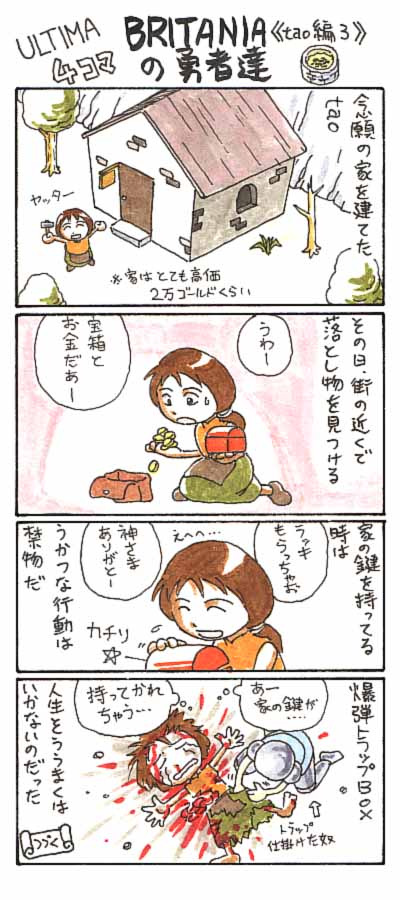 ULTIMA
4コマ
BRITANIA
の勇者達
《tao編3》
念願の家を建てた
tao
ヤッター
※家はとても高価
2万ゴールドくらい
その日、街の近くで
落とし物を見つける
うわー
宝箱と
お金だあー
家の鍵を持ってる
時は
ラッキ
もらっちゃお
えへへ…
神さま
ありがとー
カチリ
うかつな行動は
禁物だ
爆弾トラップBOX
あー
家の鍵が
‥‥
持ってかれ
ちゃう…
トラップ
仕掛けた奴
人生そううまくは
いかないのだった
つづく